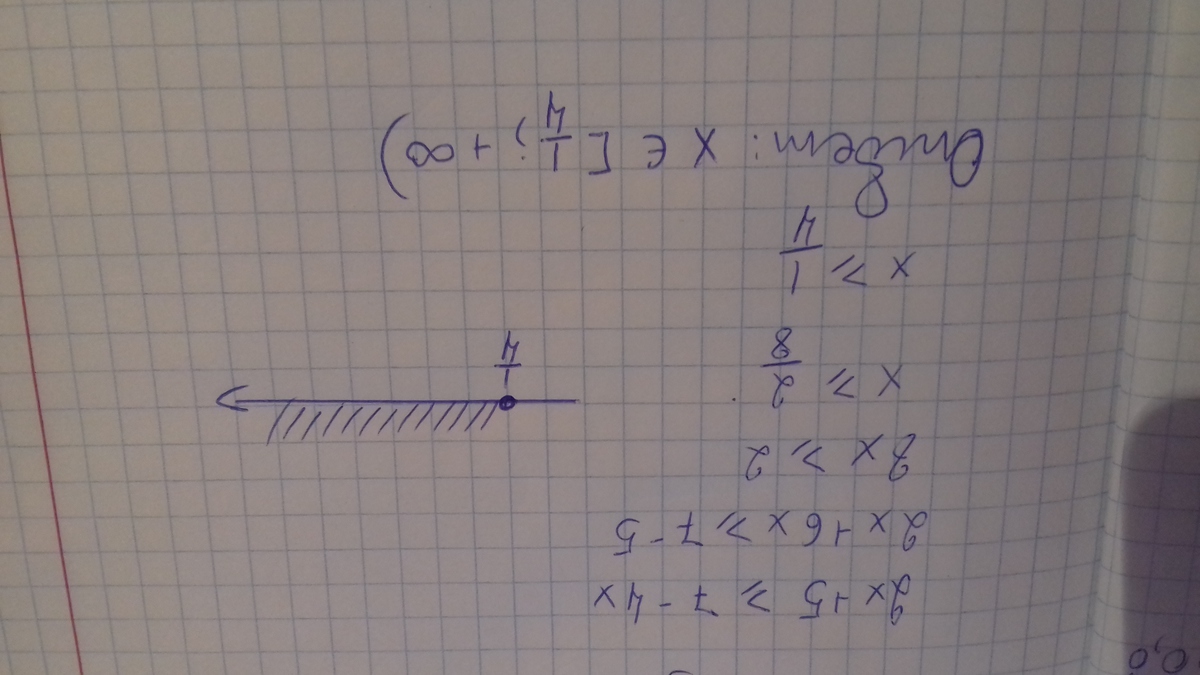 2x+5 ≥ 7-4x
2x+6x ≥ 7-5
8x ≥ 2
x ≥ 2/8
1/4
x ≥ 1/4
Ответ: x ∈ [1/4; +∞)